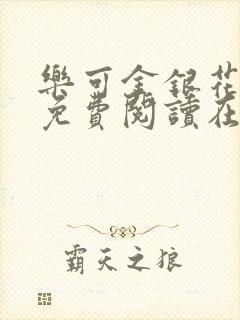 樂可金銀花
免費閱讀在
霸天之狼